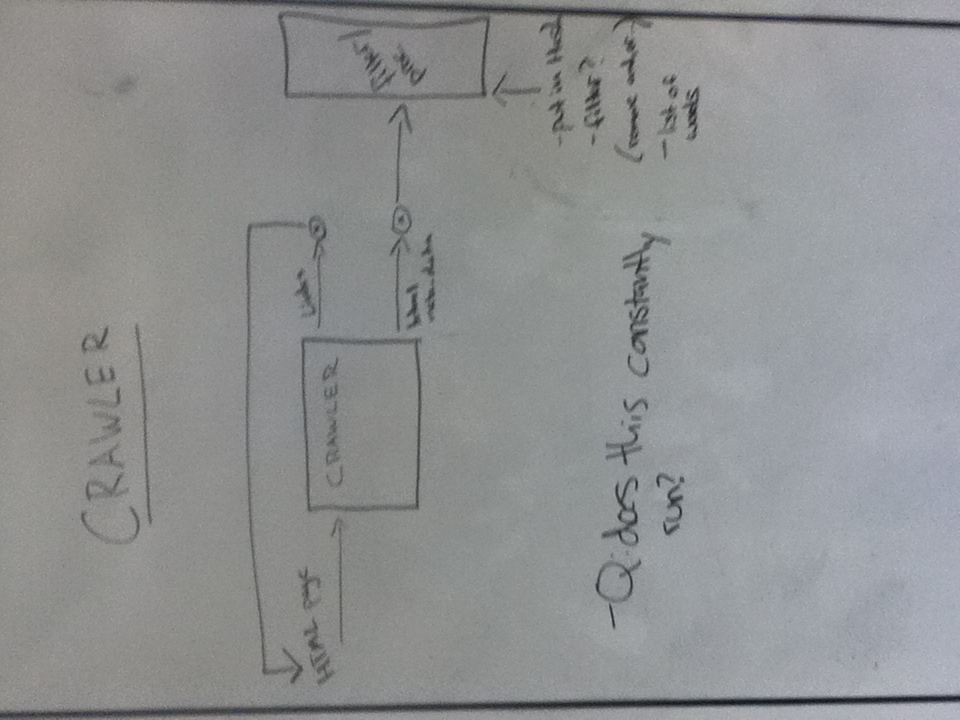 CRAWLER
HTML page
CRAWLER
Links
html
meta-data
filter/
proc
- put in Hash
- filter?
(remove and/or)
- list of
words
- Q: does this constantly
run?